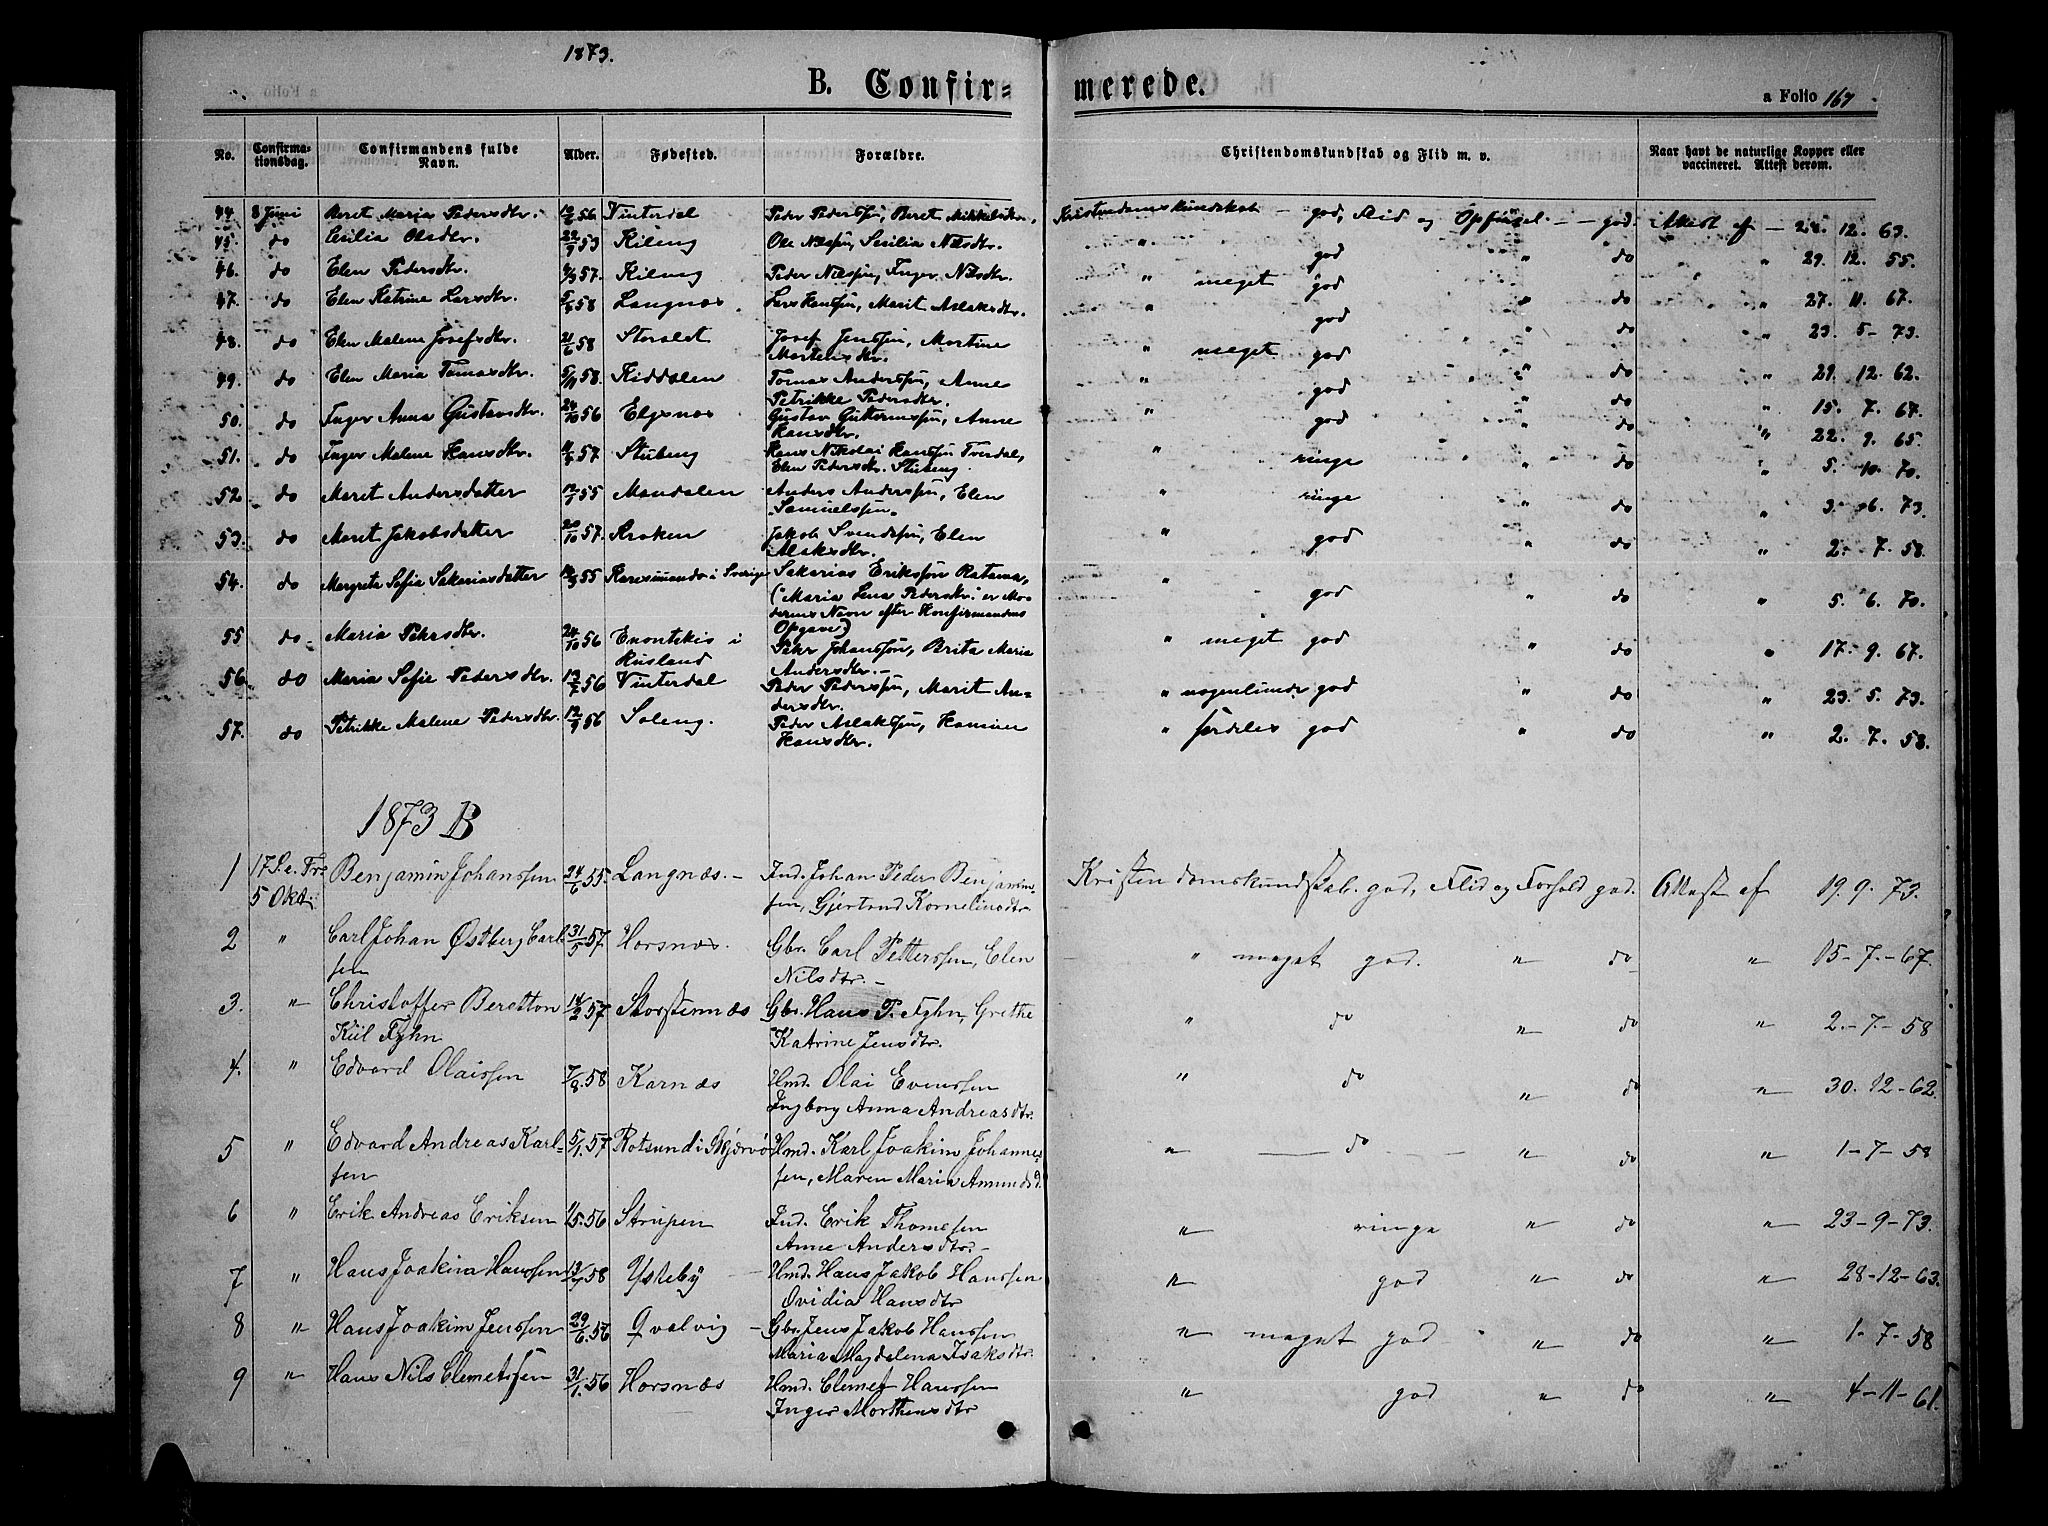 1873.
B. Confirmerede.
a Folio 167
No. Confirmationsdag. Confirmandens fulde Navn. Alder. Fødested. Forældre. Christendomskundskab og Flid m. v. Naar havt de naturlige Kopper eller vaccineret. Attest derom.
44 8 Juni Beret Maria Pedersdtr. 56 Vinterdal Peder Pederssøn, Beret Kristendomskundskab - god, Flid og Opførsel - god. Attest af 12. 63.
45. do Cesilia Olsdtr. 53 Kileng Ole Nilssøn, Sesilia Nilsdtr. " god " do " 29. 12. 55.
46. do Elen Pedersdtr. 57. Kileng Peder Nilssøn, Inger Nilsdtr. " meget god " do " 27. 11. 67.
47. do Elen Katrine Larsdtr. 58 Langnæs. Lars Hanssøn, Marit Aslaksdtr. " god " do " 23. 5 - 73.
48. do Elen Malene Josefsdtr. 21/6 58 Storslet Josef Jenssøn, Martine
Mortensdtr. " meget god " do " 29. 12. 62.
49. do Elen Maria Tomasdtr. 58. Kiddalen Tomas Anderssøn, Anne
Petrikke Pedersdtr. " god " do " 15. 7. 67.
50. do Inger Anna Gustavsdtr. 24/10 56 Elvsnæs Gustav Guttormssøn, Anne
Hansdtr. " god " do " 22. 9. 65.
51. do Inger Malene Hansdtr. 57. Stubeng Hans Nikolai Hanssøn Tverdal,
Elen Pedersdtr. Stubeng. " ringe " do " 5. 10. 70.
52. do Maret Andersdatter 55 Mandalen Anders Anderssøn, Elen
Samuelssøn. " ringe " do " 3. 6. 73.
53. do Maret Jakobsdatter 20/10 57. Kroken Jakob Svendssøn, Elen
Aslaksdtr. " god " do " 2. 7. 58.
54. do Margreta Sofia Sakariasdatter 55 Karesuando i Sverige Sakarias Erikssøn Ratama,
("Maria Lena Pedersdtr." er Mo-
derens Navn efter Konfirmandens
Opgave) " god " do " 5. 6. 70.
55 do Maria Pehrsdtr. 24/10 56 Enontekis i
Rusland Pehr Johanssøn, Brita Maria
Andersdtr. " meget god " do " 17. 9. 67.
56. do Maria Sofie Pedersdtr. 56 Vinterdal Peder Pederssøn, Marit An-
dersdtr. " nogenlunde god " do " 23. 5. 73.
57. do Petrikke Malene Pedersdtr. 12/9 56 Soleng. Peder Aslakssøn, Hansine
Hansdtr. " særdeles god " do " 2. 7. 58.
1873 B
1 17 S. e. Tr. Benjamin Johanssen 24/6 55. Langnæs. Ind. Johan Peder Benjamin-
5 Okt. sen, Gjertrud Korneliusdtr. Kristendomskundskab. god, Flid og Forhold god. Attest af 19. 9. 73.
2 " Carl Johan Østberg Carl-
sen 31/5 57. Horsnæs. Gbr. Carl Petterssen, Elen
Nilsdtr. " meget god. " do " 15-7.-67.
3. " Christoffer Beretton
Kiil Fyhn 14/2 57 Storstennæs Gbr. Hans P. Fyhn, Grethe
Katrine Jensdtr. " do " do " 2.-7-58
4. " Edvard Olaissen 7/8. 58 Karnæs Hmd. Olai Evenssen
Ingborg Anna Andreasdtr. " do " do " 30. 12-62.
5 " Edvard Andreas Karl-
sen 5/1. 57 Rotsund i Skjærvø Hmd. Karl Joakim Johannes-
sen, Maren Maria Amundsd. " do " do " 1-7-58
6 " Erik Andreas Eriksen 56 Strupen Ind. Erik Thomesen
Anne Andersdtr. " ringe " do " 23-9-73.
7 " Hans Joakim Hanssen 58 Ysteby Hmd. Hans Jakob Hanssen
Ovidia Hansdtr " god " do " 28-12-63.
8 " Hans Joakim Jenssen 29/6. 56 Qvalvig Gbr. Jens Jakob Hanssen
Maria Magdalena Isaksdtr. " meget god " do " 1-7-58
9 " Hans Nils Clemetssen 31/1. 56 Horsnæs Hmd. Clemet Hanssen
Inger Morthensdtr " god " do " 4-11-61.